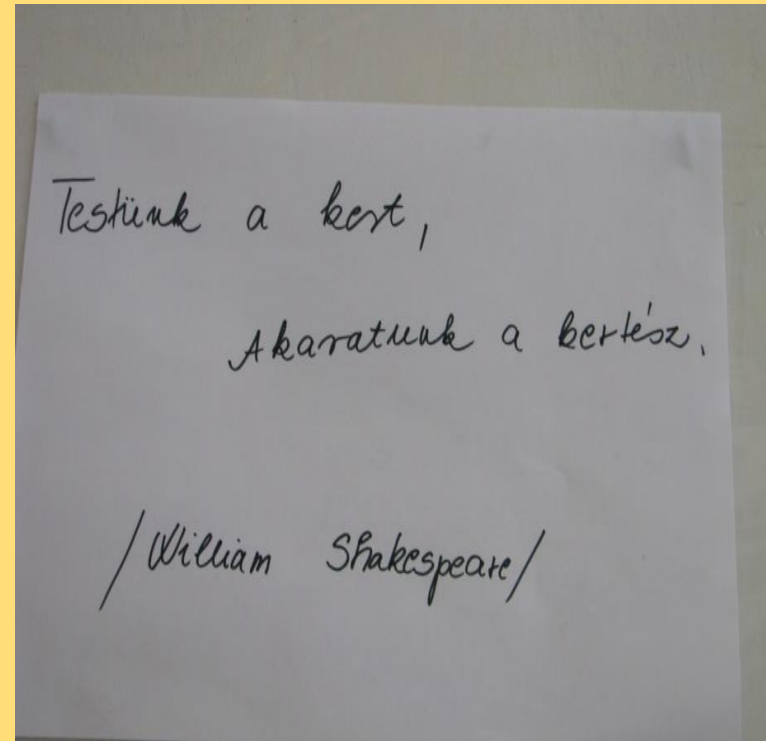 Testünk a kert,
Akaratunk a kertész.
/William Shakespeare/